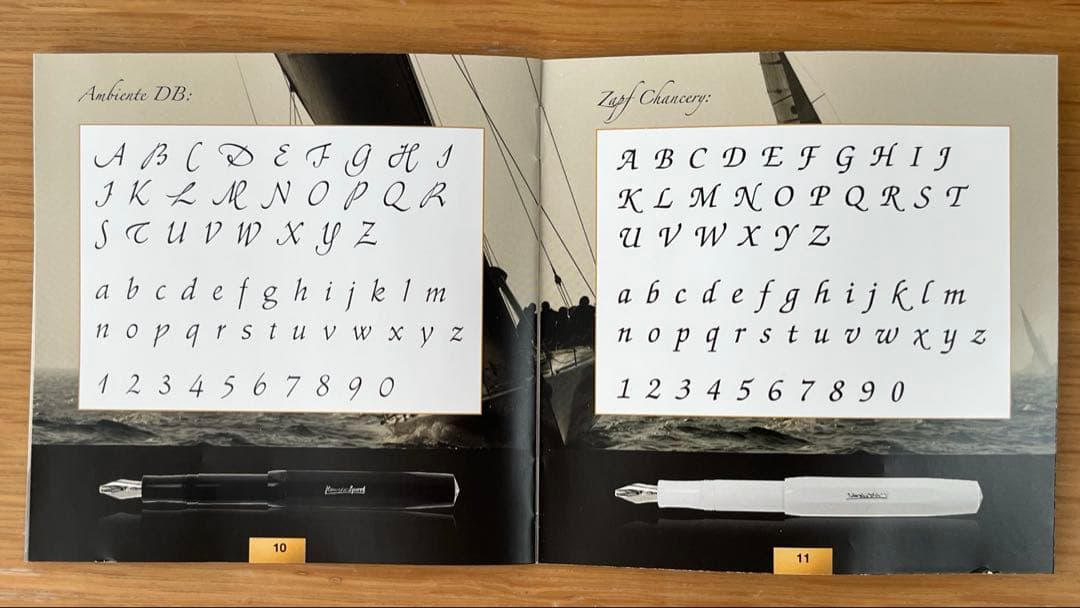 Ambiente DB:
A B C D E F G H I
J K L M N O P Q R
S T U V W X Y Z
a b c d e f g h i j k l m
n o p q r s t u v w x y z
1 2 3 4 5 6 7 8 9 0
10
Zapf Chancery:
A B C D E F G H I J
K L M N O P Q R S T
U V W X Y Z
a b c d e f g h i j k l m
n o p q r s t u v w x y z
1 2 3 4 5 6 7 8 9 0
11